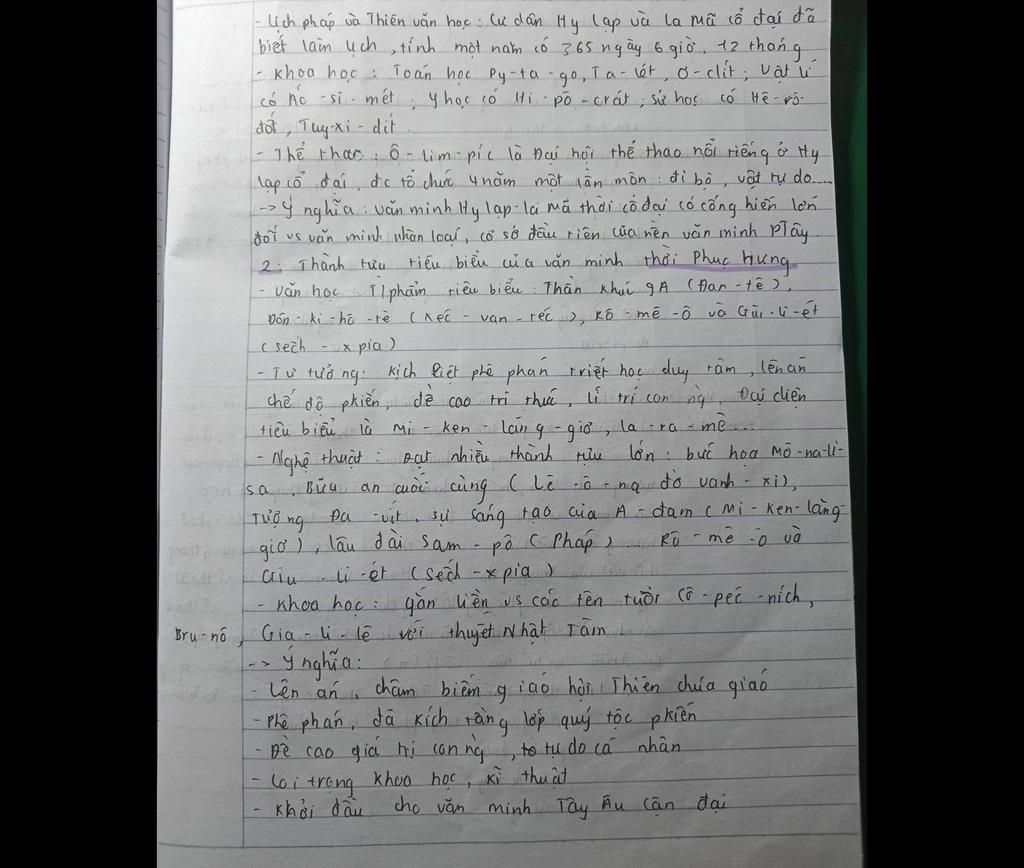 - Lịch pháp và Thiên văn học: Cư dân Hy Lạp và La Mã cổ đại đã
biết làm lịch, tính một năm có 365 ngày 6 giờ. 12 tháng
- Khoa học: Toán học Py-ta-go, Ta-lét, Ơ-clít; Vật lí
có Ác-si-mét; Y học có Hi-pô-crát; sử học có Hê-rô-
đốt, Tuy-xi-dít
- Thể thao: Ô-lim-píc là Đại hội thể thao nổi tiếng ở Hy
Lạp cổ đại, đc tổ chức 4 năm một lần môn: đi bộ, vật tự do....
-> Ý nghĩa: văn minh Hy Lạp-La Mã thời cổ đại có cống hiến lớn
đối vs văn minh nhân loại, cơ sở đầu tiên của nền văn minh PTây
2: Thành tựu tiêu biểu của văn minh thời Phục Hưng
- Văn học: T/phẩm tiêu biểu: Thần khúc (Đan-tê),
Đôn-ki-hô-tê (Xéc-van-téc), Rô-mê-ô và Giu-li-ét
(sếch-xpia)
- Tư tưởng: Kịch liệt phê phán triết học duy tâm, lên án
chế độ pkiến, đề cao tri thức, lí trí con ng, Đại diện
tiêu biểu là Mi-ken-lăng-giơ, la-ra-mê...
- Nghệ thuật: Đạt nhiều thành tựu lớn: bức họa Mô-na-li-
sa, Bữa ăn cuối cùng (Lê-ô-na đờ vanh-xi),
Tượng Đa-vít, sự sáng tạo của A-đam (Mi-ken-lăng-
giơ), lâu đài Sam-pô (Pháp)... Rô-mê-ô và
Giu-li-ét (sếch-xpia)
- Khoa học: gắn liền vs các tên tuổi Cô-péc-ních,
Bru-nô, Gia-li-lê với thuyết Nhật Tâm.
-> Ý nghĩa:
- Lên án, châm biếm giáo hội Thiên chúa giáo
- Phê phán, đả kích tầng lớp quý tộc pkiến
- Đề cao giá trị con ng, tự do cá nhân
- Coi trọng khoa học, kĩ thuật
- Khởi đầu cho văn minh Tây Âu cận đại